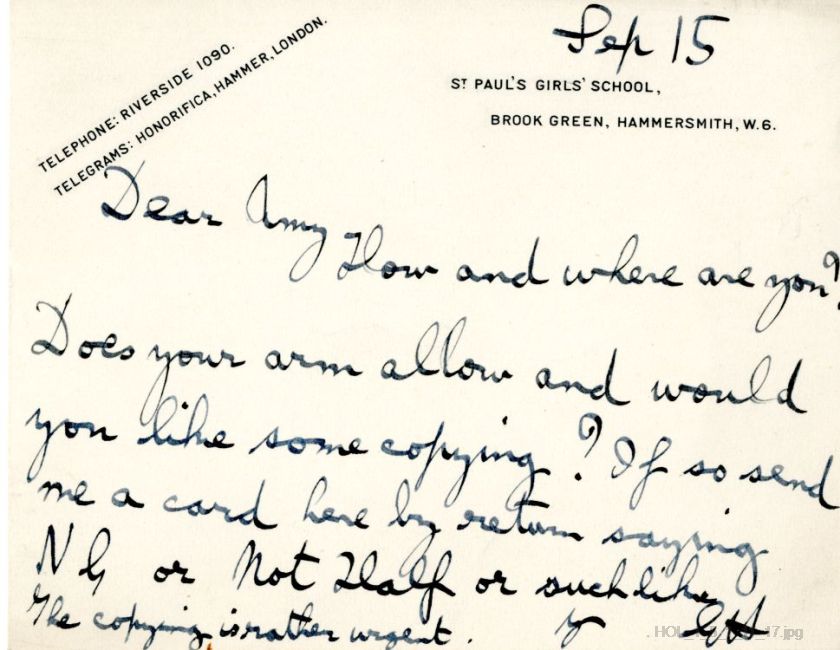 Sep 15
TELEPHONE: RIVERSIDE 1090.
TELEGRAMS: HONORIFICA, HAMMER, LONDON.
ST PAUL'S GIRLS' SCHOOL,
BROOK GREEN, HAMMERSMITH, W.6.
Dear Amy How and where are you?
Does your arm allow and would
you like some copying? If so send
me a card here by return saying
N G or Not Half or suchlike
The copying is rather urgent. Y GH